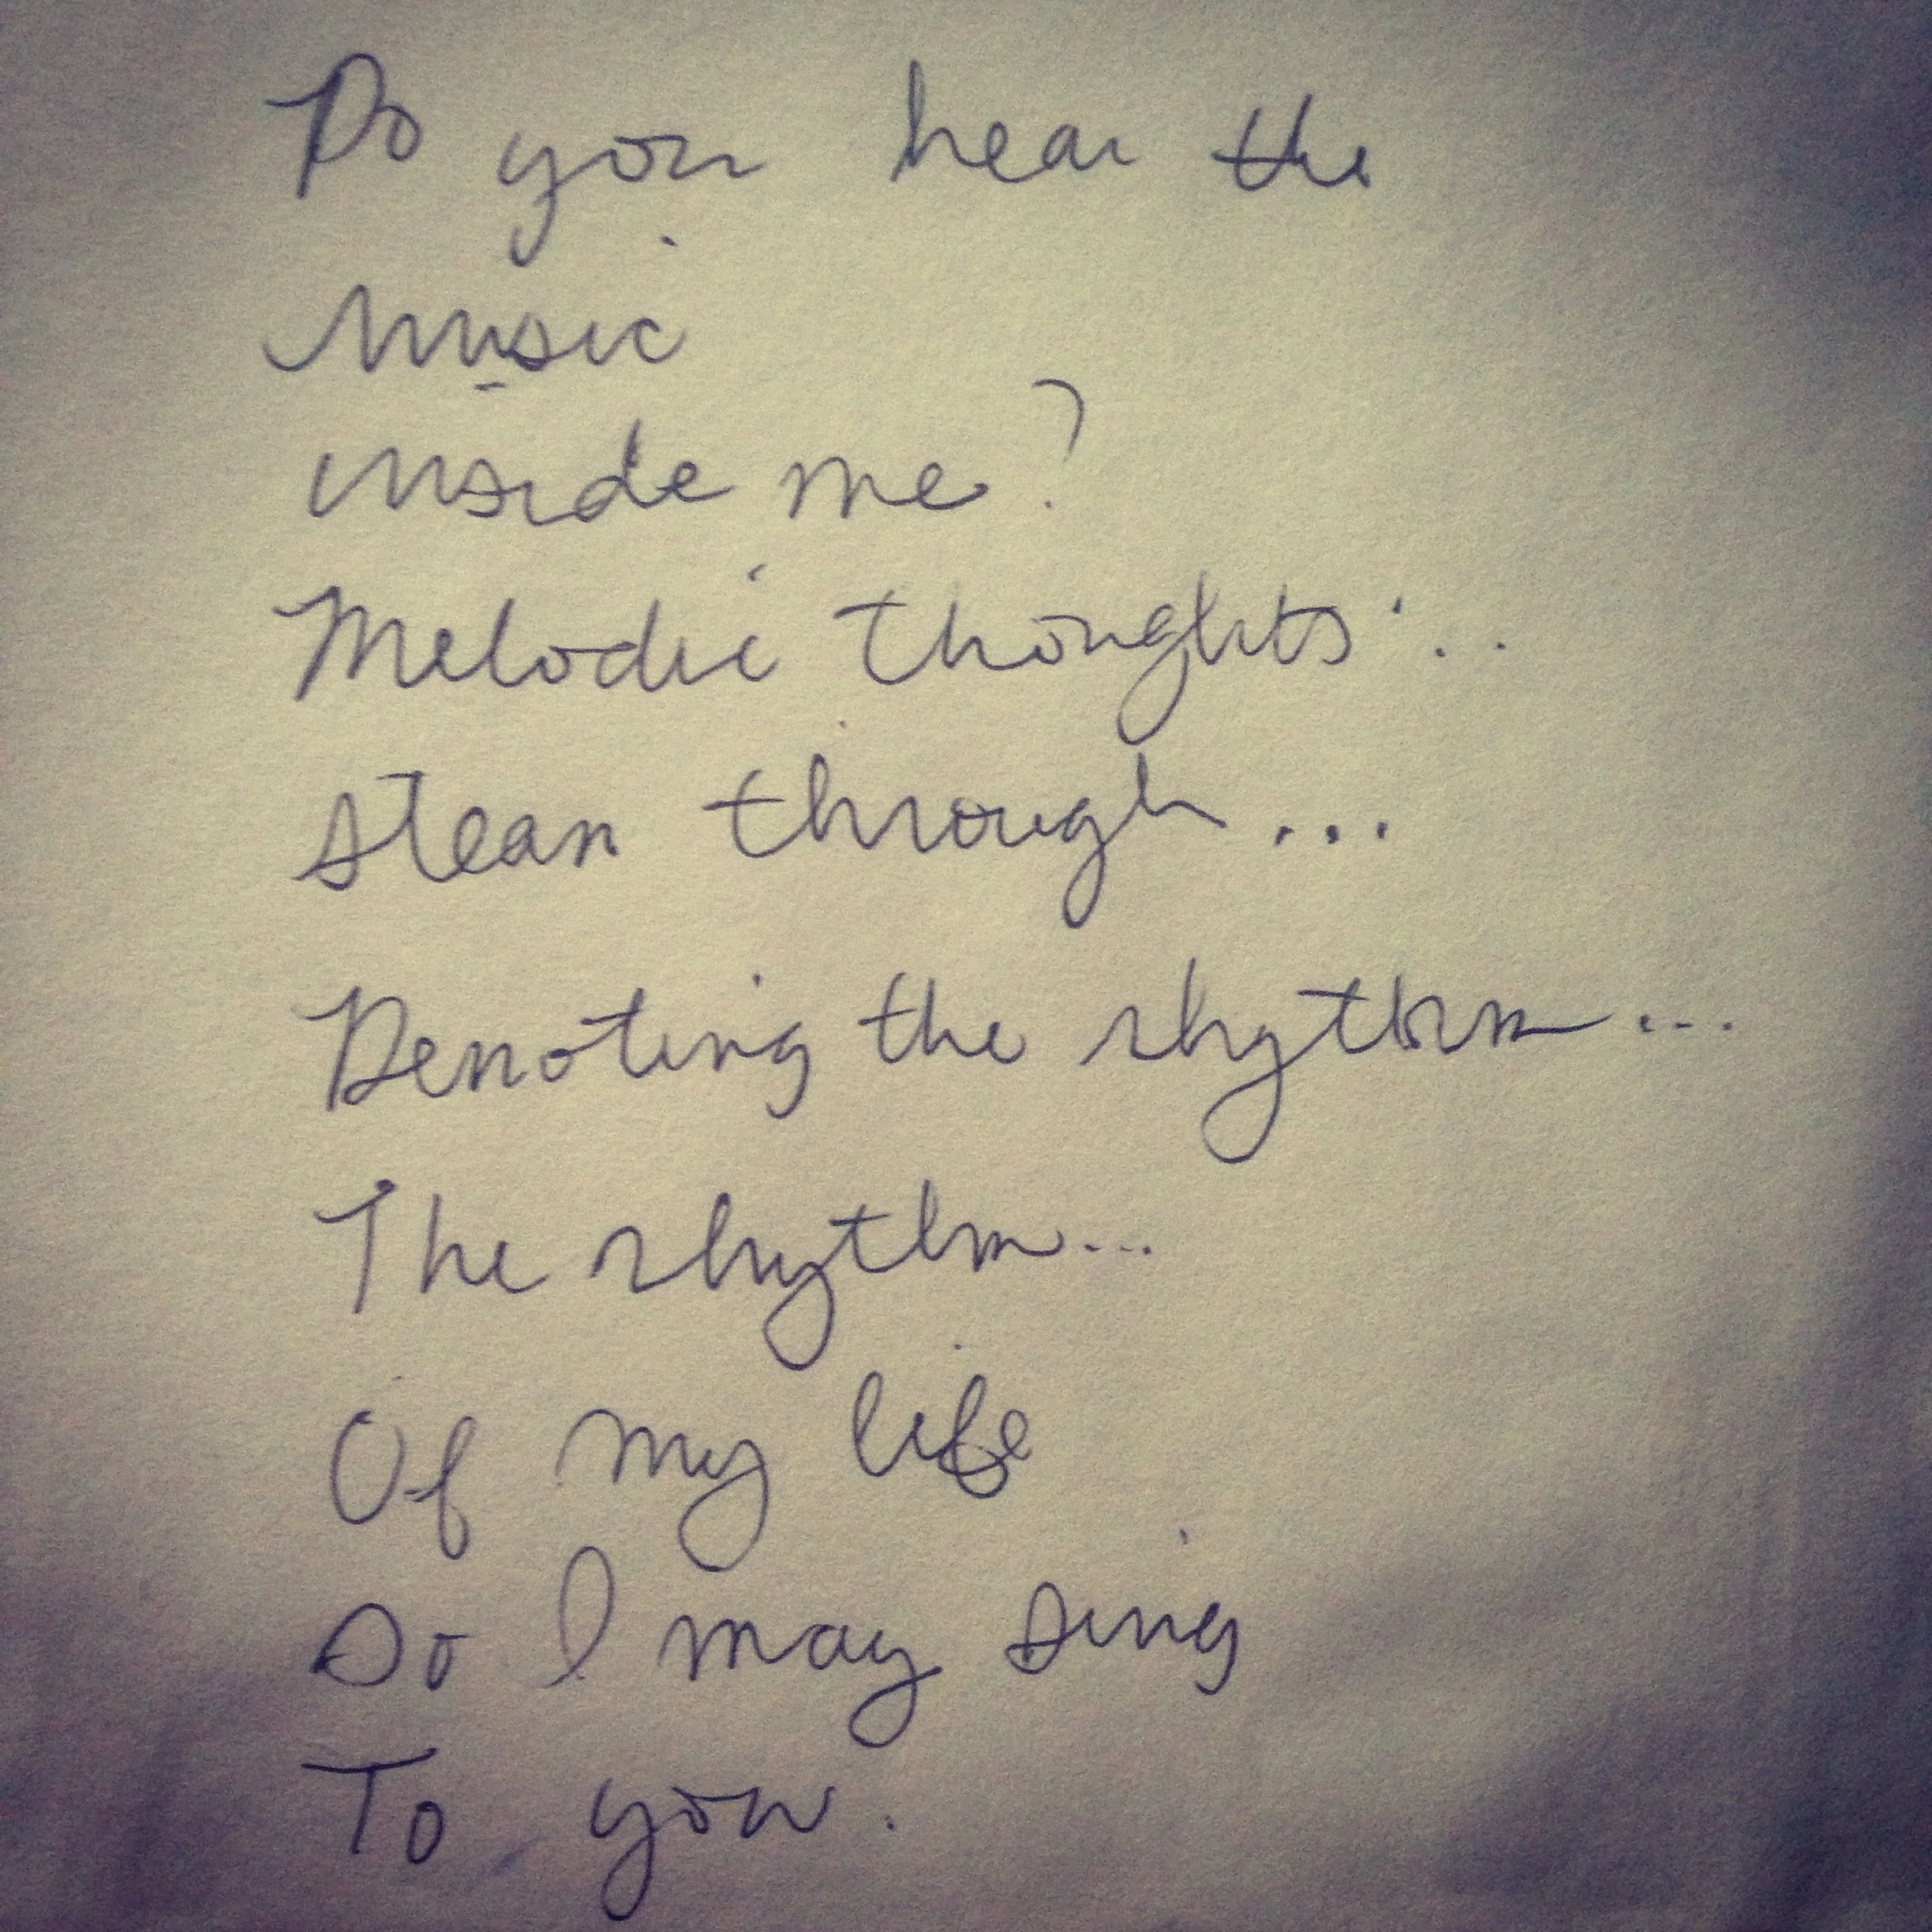 Do you hear the
music
inside me?
Melodic thoughts...
through...
Denoting the rhythm...
The rhythm...
Of my life
So I may sing
To you.